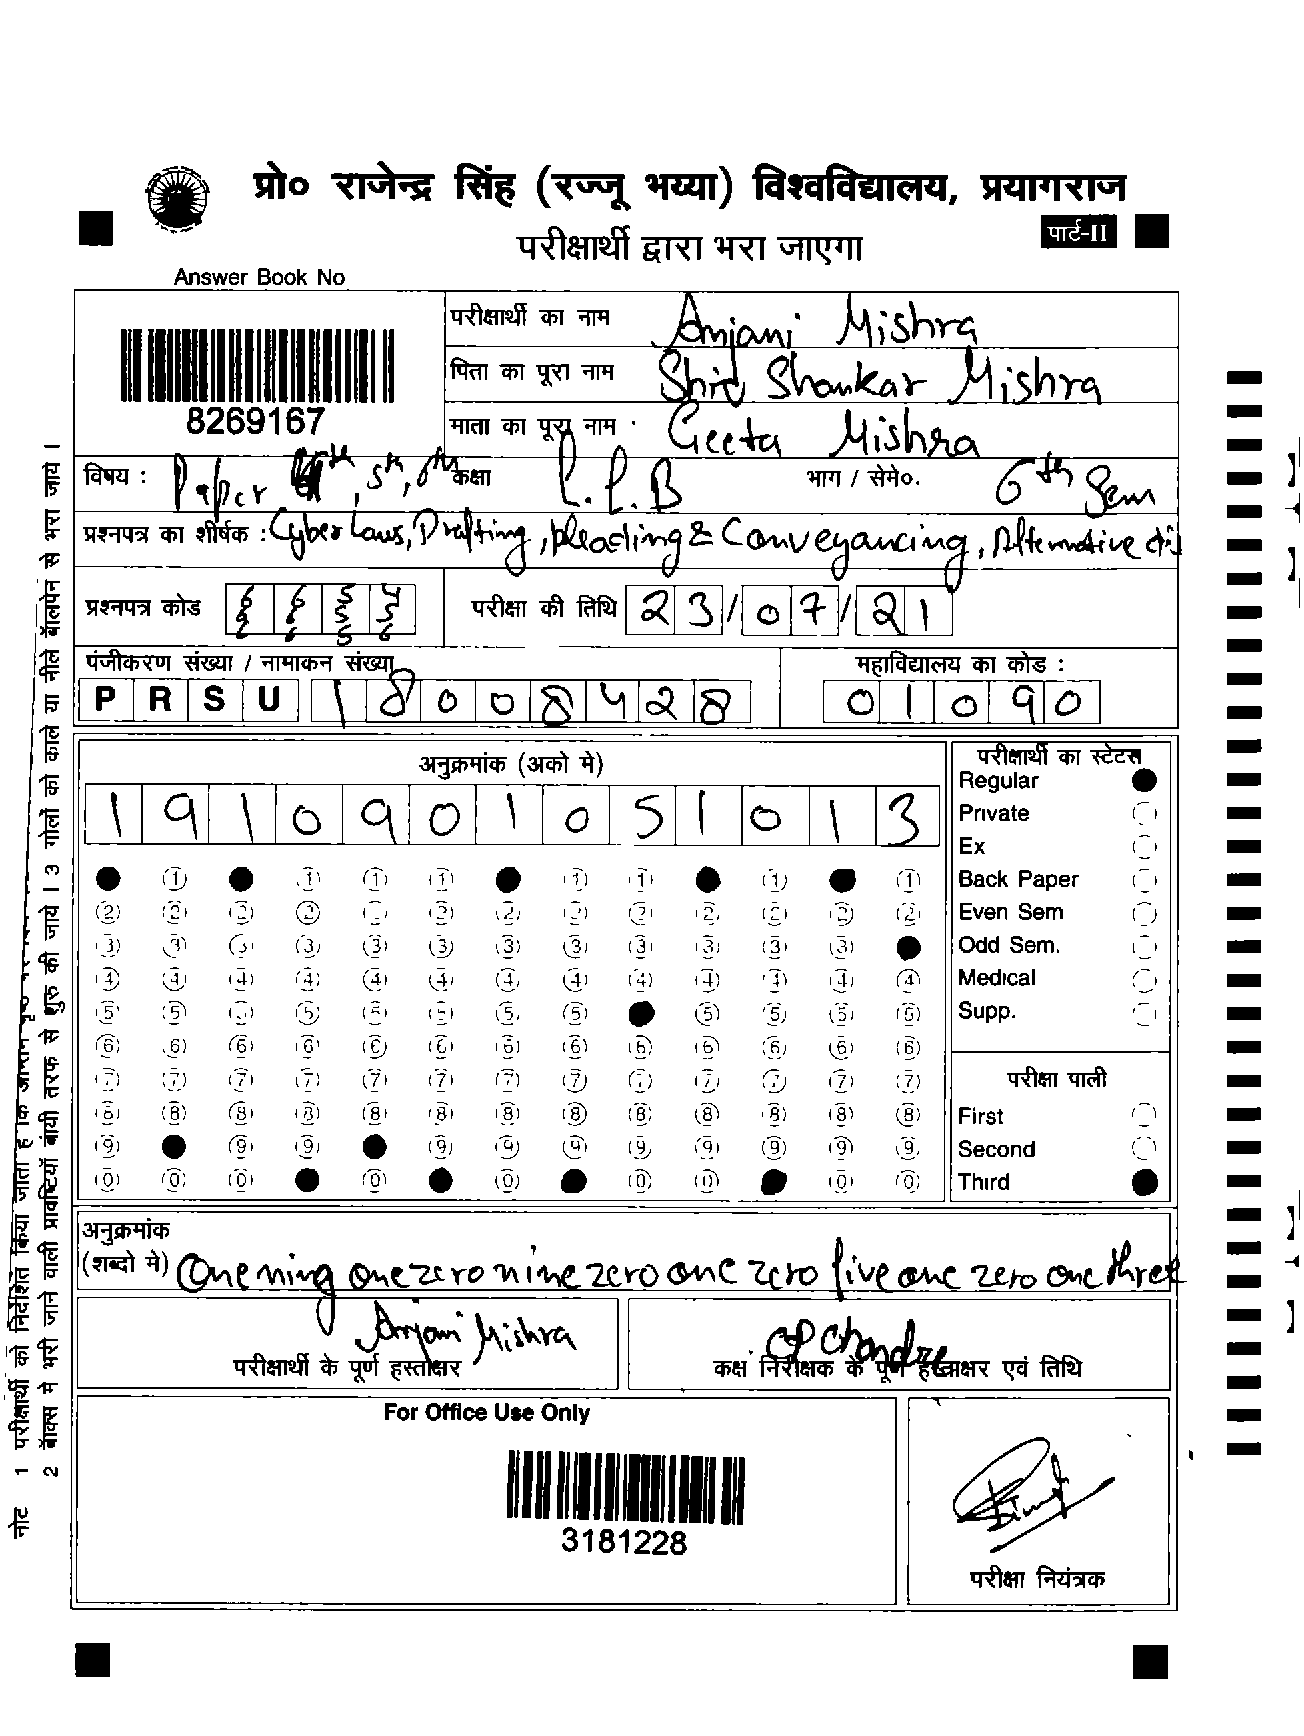 प्रो० राजेन्द्र सिंह (रज्जू भय्या) विश्वविद्यालय, प्रयागराज
पार्ट-II
परीक्षार्थी द्वारा भरा जाएगा
Answer Book No
8269167
परीक्षार्थी का नाम Anjani Mishra
पिता का पूरा नाम Shiv Shankar Mishra
माता का पूरा नाम Geeta Mishra
विषय : Paper 4th, 5th, 6th कक्षा L.L.B भाग / सेमे०. 6th Sem
प्रश्नपत्र का शीर्षक : Cyber Laws, Drafting, pleading & Conveyancing, Alternative dis
प्रश्नपत्र कोड परीक्षा की तिथि 23/07/21
पंजीकरण संख्या / नामाकन संख्या महाविद्यालय का कोड :
PRSU 18008428 01090
अनुक्रमांक (अंको मे)
1910901051013
परीक्षार्थी का स्टेटस
Regular
Private
Ex
Back Paper
Even Sem
Odd Sem.
Medical
Supp.
परीक्षा पाली
First
Second
Third
अनुक्रमांक
(शब्दो मे) One ning one zero nine zero one zero five one zero one three
Anjani Mishra
परीक्षार्थी के पूर्ण हस्ताक्षर
CP Chandra
कक्ष निरीक्षक के पूर्ण हस्ताक्षर एवं तिथि
For Office Use Only
3181228
परीक्षा नियंत्रक
नोट 1 परीक्षार्थी को निर्देशित किया जाता है कि
2 बॉक्स मे भरी जाने वाली प्रावष्टियाँ बांयी तरफ से शुरु की जाये । 3 गोलों को काले या नीले बॉलपेन से भरा जाये ।